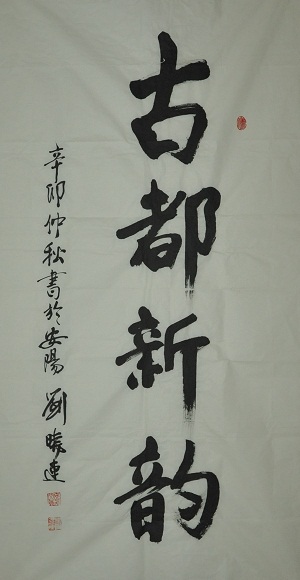 古都新韵
辛卯仲秋書於安陽 劉連